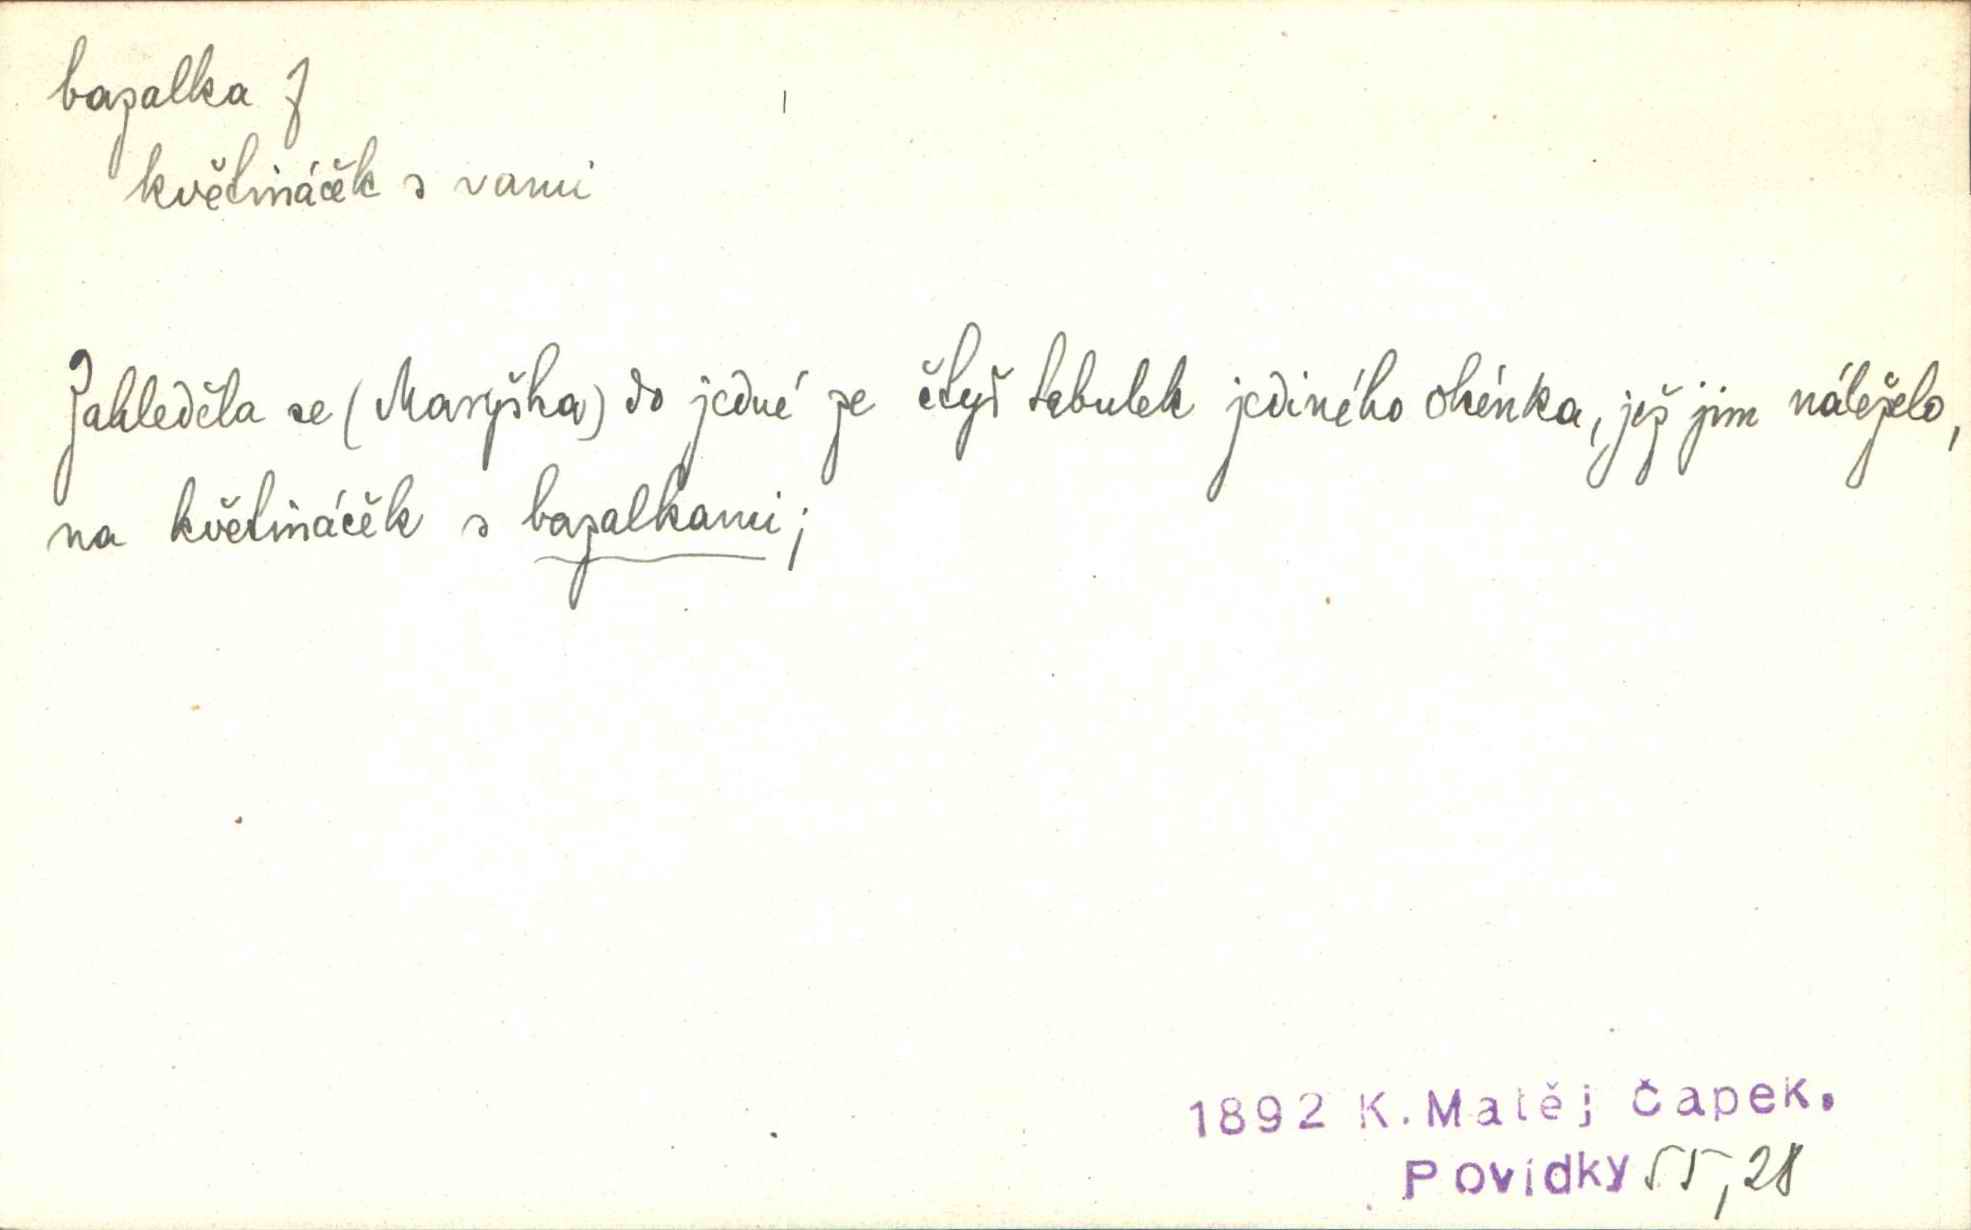 bazalka f
květináček s vami
Zahleděla se (Maryška) do jedné ze čtyř tabulek jediného okénka, jež jim náleželo,
na květináček s bazalkami;
1892 K. Matěj Čapek.
Povídky 55,28